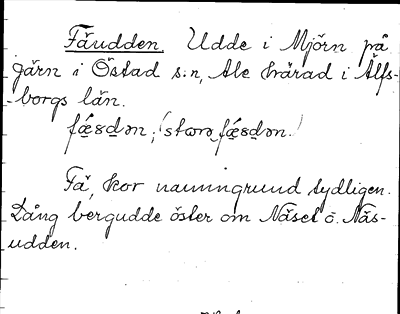 Fäudden. Udde i Mjörn på
gårn i Östad s:n, Ale härad i Älfs-
-borgs län.
Få, kor namngrund tydligen.
Lång bergudde öster om Näset o. Näs-
udden.